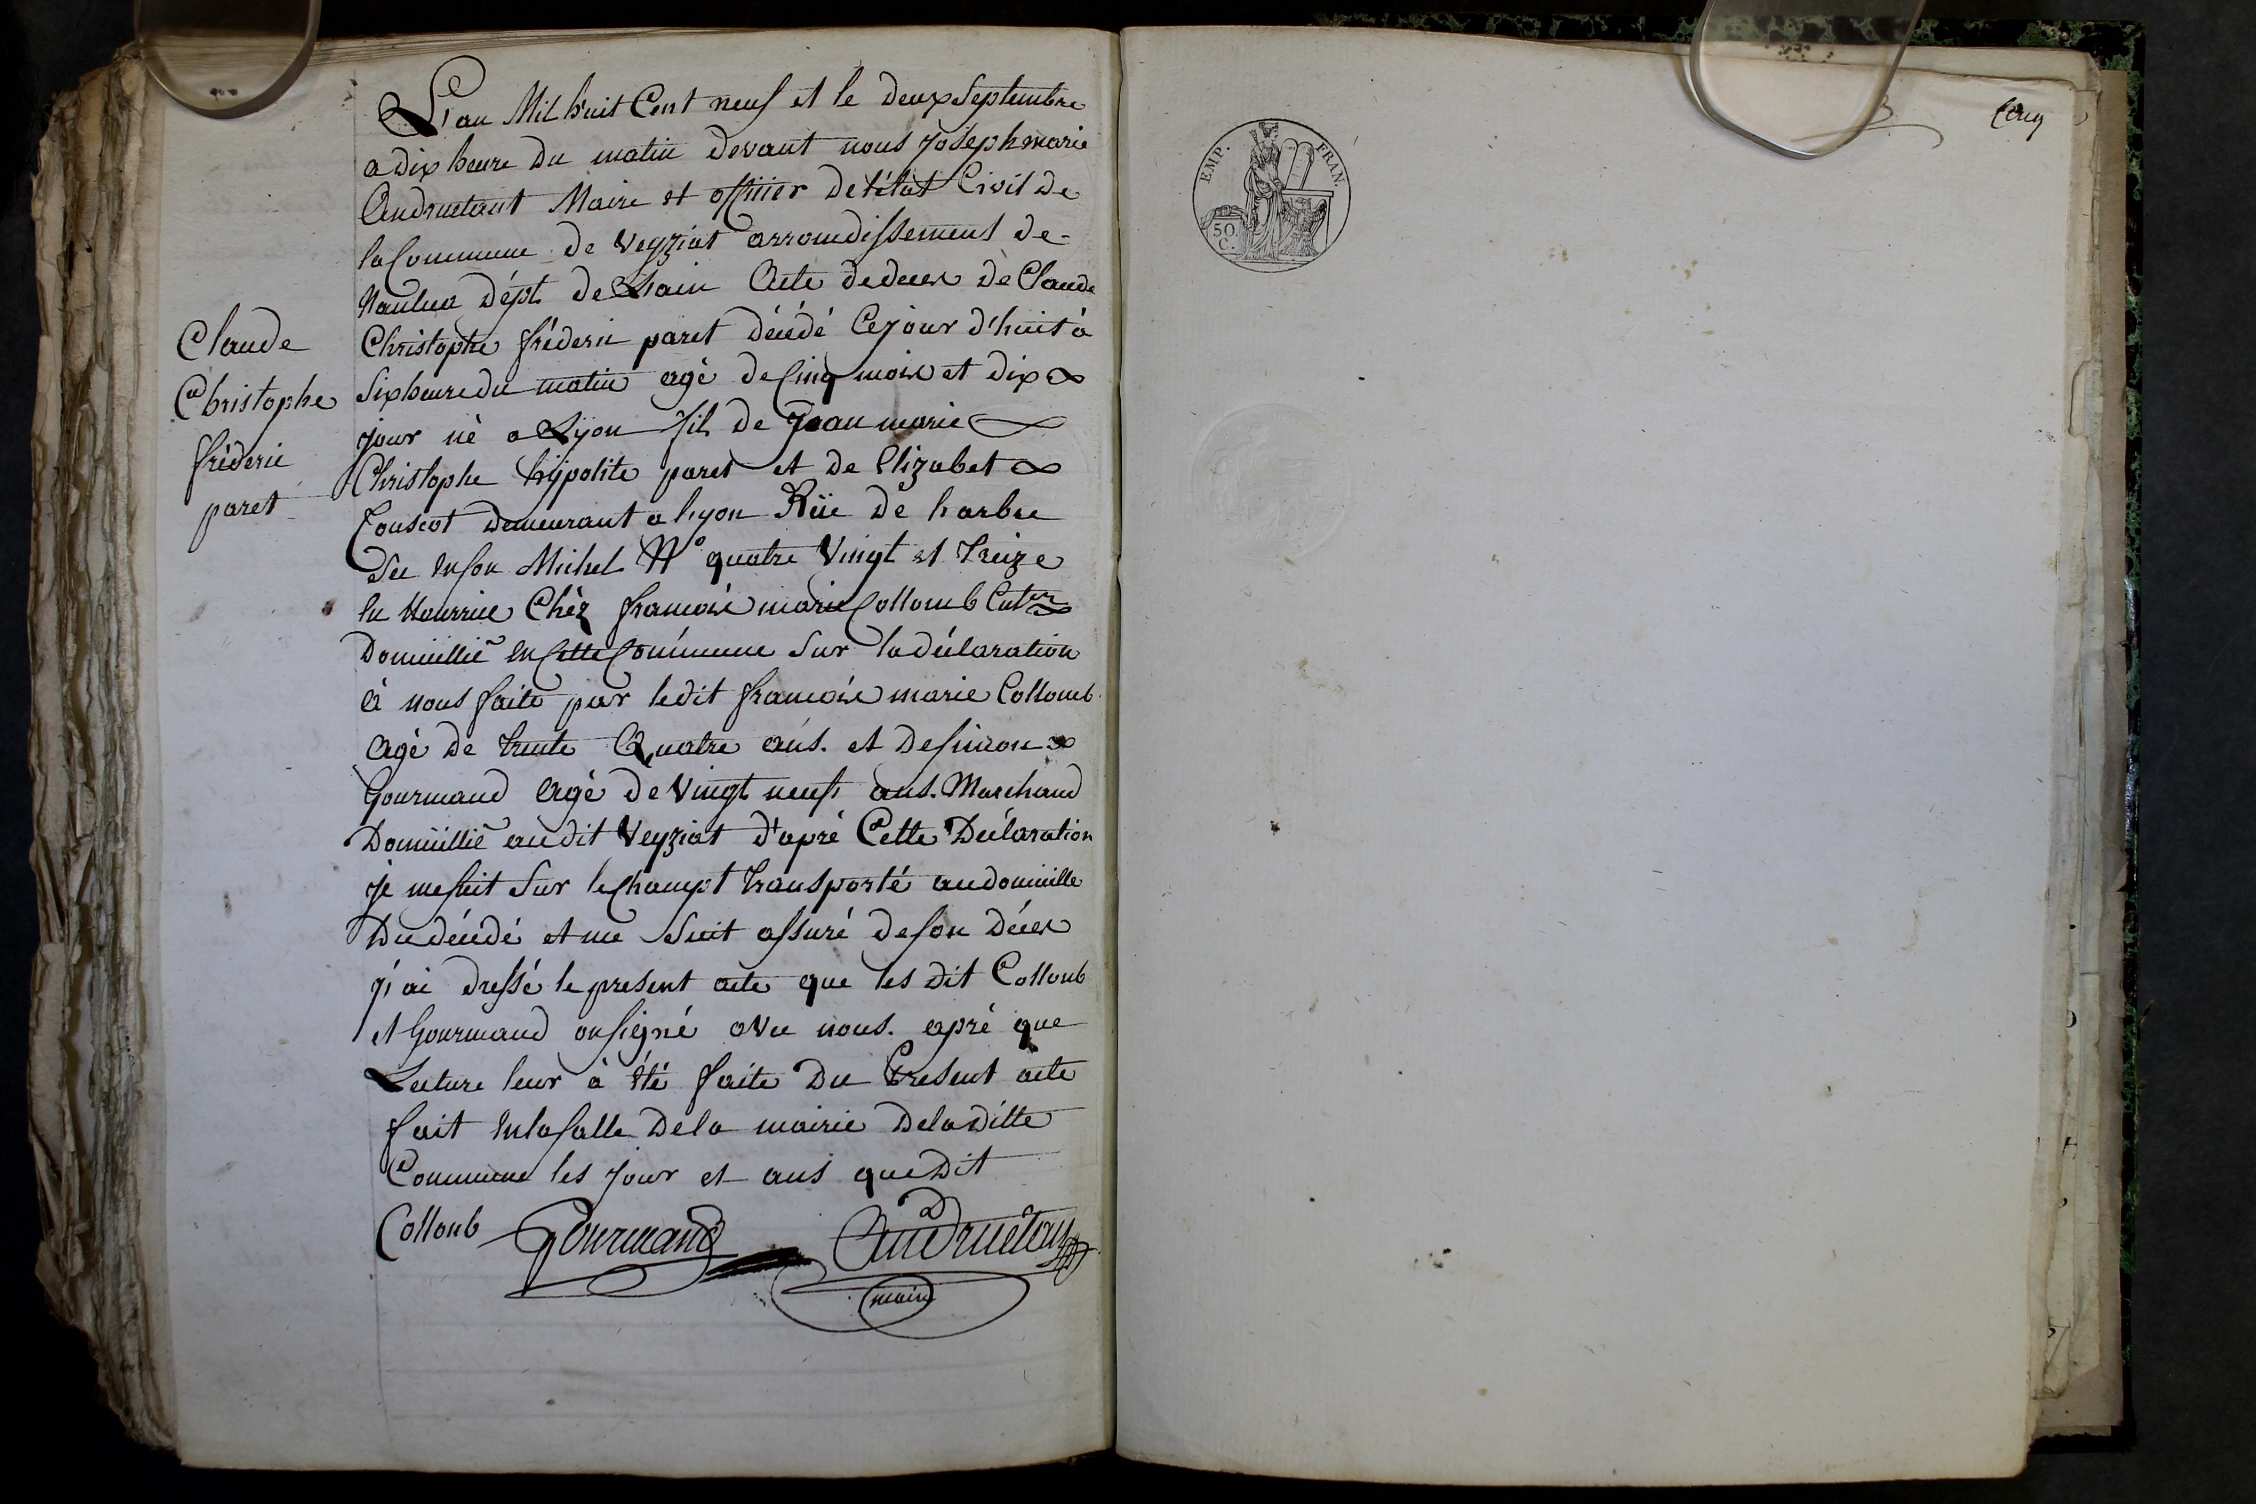 L'an Mil huit Cent neuf et le deux Septembre
a dix heure du matin devant nous joseph marie
Andruetant Maire et officier de l'état Civil de
la Commune de Veyziat arrondissement de
Nantua dépt. de L'ain Acte de deces de Claude
Christophe fréderic paret décédé Ce jour d'huit à
Six heure du matin agé de Cinq mois et dix
jour né a Lyon fils de Jean marie
Christophe hypolite paret et de Elizabet
Couseot demeurant a lyon Rüe de harbre
Sec No quatre Vingt et treize
en Nourrice Chèz francois marie Collomb Culr.
Domicillié en Cette Commune Sur la déclaration
à nous faite par ledit francois marie Collomb
Agé de trente Quatre ans. et de Simon
Gourmand Agé de Vingt neuf ans. Marchand
Domicillié audit Veyziat d'apré Cette Déclaration
je me suit Sur le Champt transporté au domicille
Du décédé et me Suit assuré de son Déces
j'ai dressé le present acte que les dit Collonb
et Gourmand on signé avec nous. apré que
Lecture leur à été faite Du Present acte
fait en la salle de la mairie de la ditte
Commune les jour et ans que dit
Collonb Gourmand Andruétan
maire
Claude
Christophe
fréderic
paret
EMP. FRAN.
50.
C.